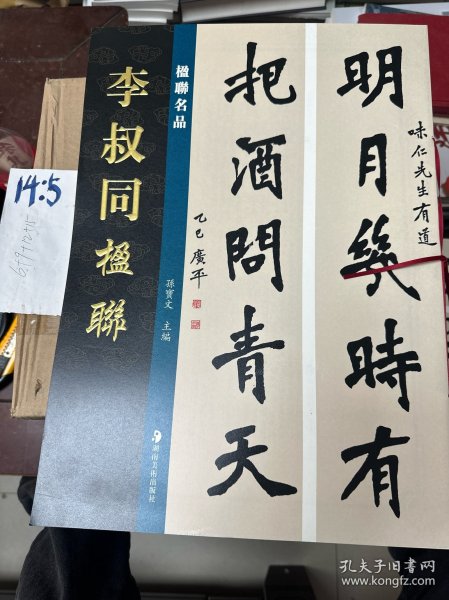 明月幾時有
味仁先生有道
把酒問青天
乙巳廣平
楹聯名品
孫寶文 主編
湖南美術出版社
李叔同楹聯
14:5
孔夫子旧书网
www.kongfz.com